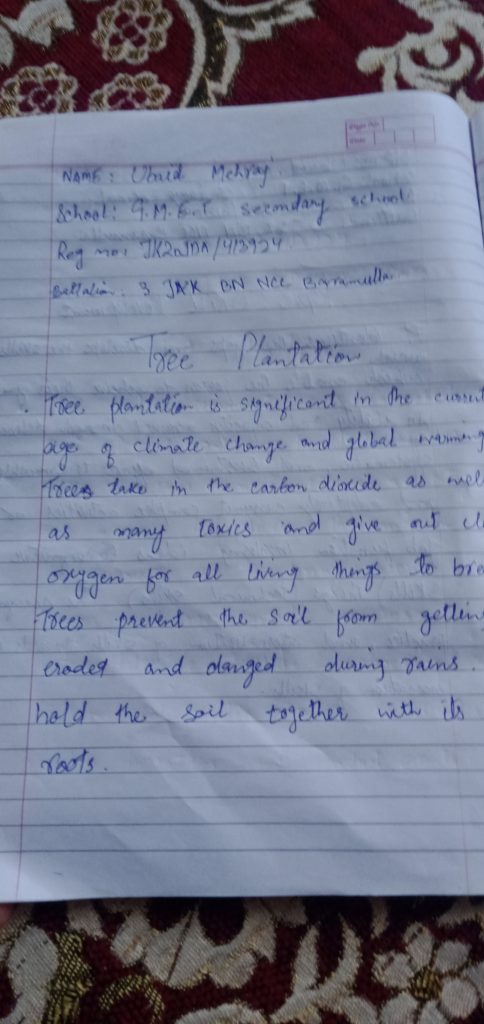 Page No.
Date
NAME: Mehraj
School: G.M.E.T secondary school
Reg no: JK20JDA/413924
Battalion: 3 J&K BN NCC Barramulla
Tree Plantation
Tree plantation is significant in the current
age of climate change and global warming
Trees take in the carbon dioxide as well
as many toxics and give out
oxygen for all living things to bre
Trees prevent the soil from gettin
eroded and danged during rains.
hold the soil together with its
roots.